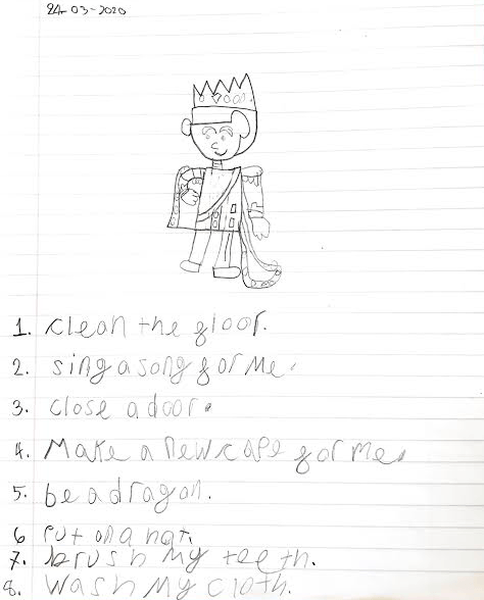 24-03-2020
1. clean the floor.
2. sing a song for me.
3. close a door.
4. Make a new cape for me.
5. be a dragon.
6 Put on a hat.
7. brush my teeth.
8. wash my cloth.